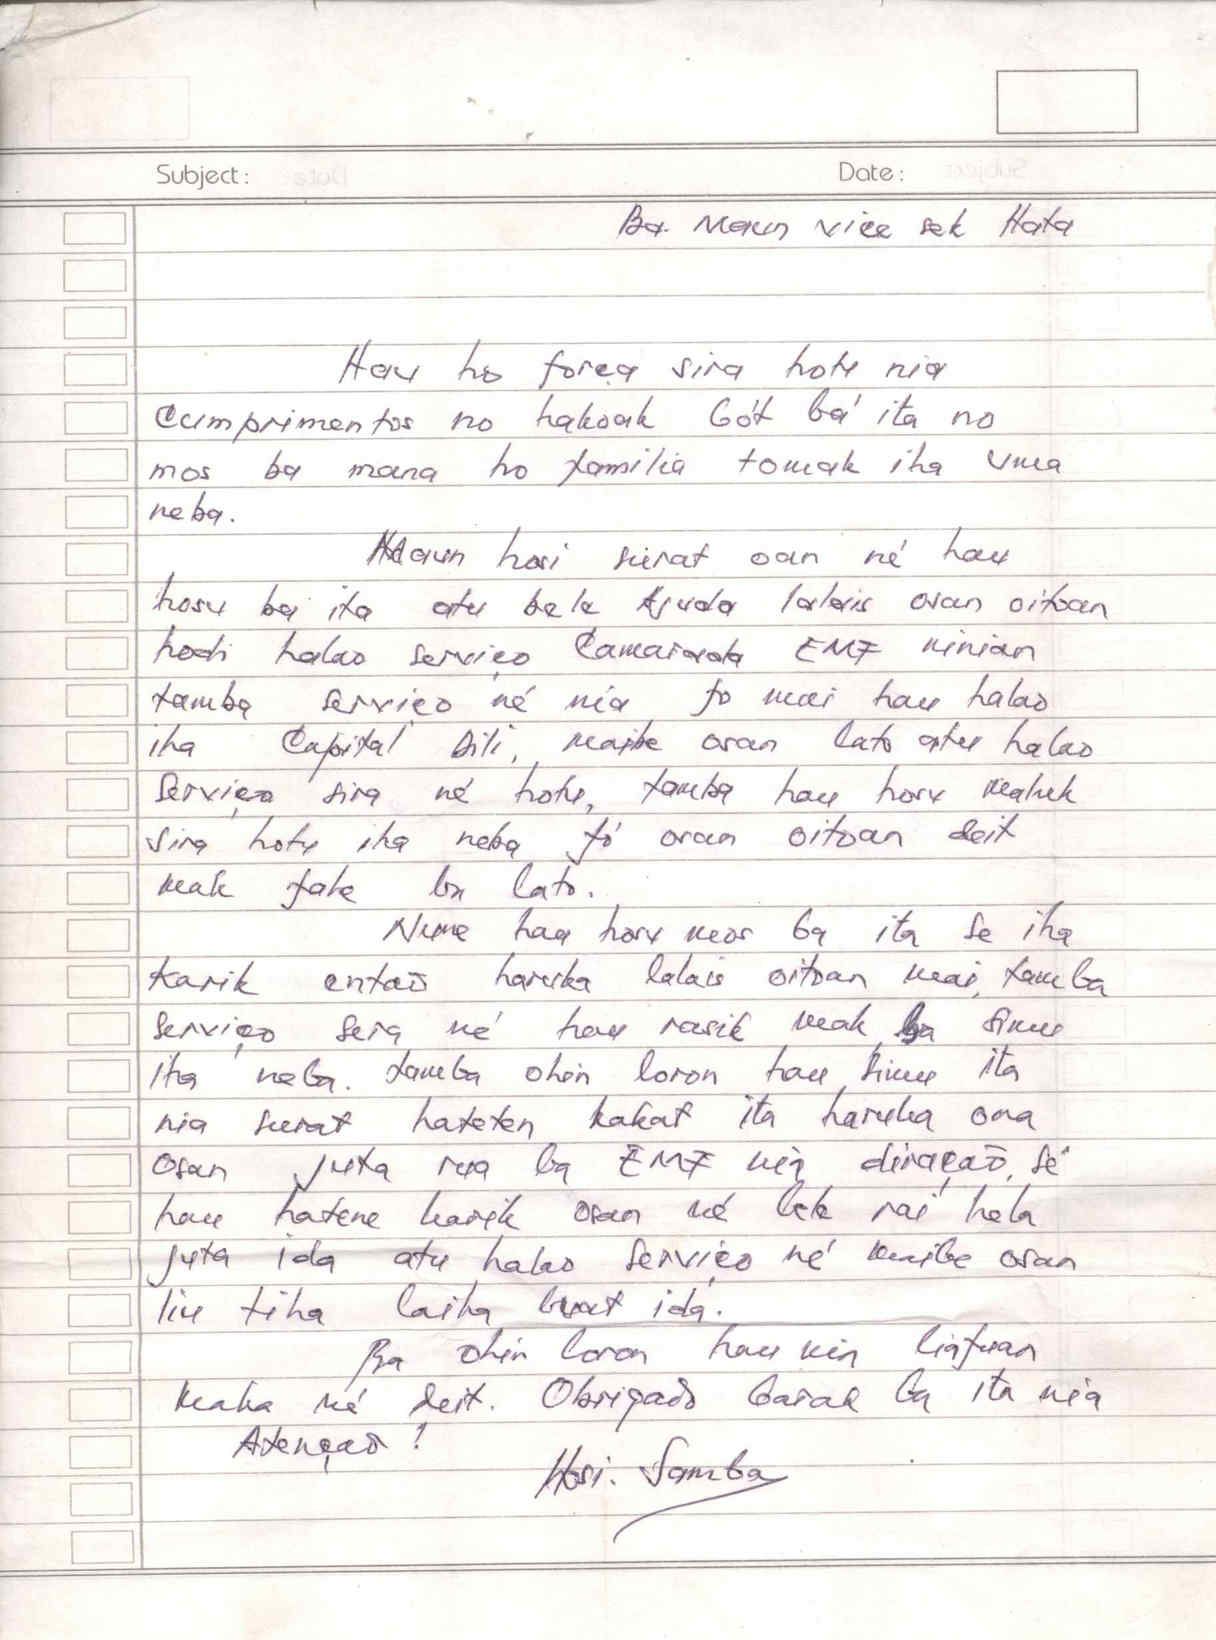 Subject:
Date:
Ba. Maun vice sek Hata
Hau ho força sira hotu nia
Cumprimentos no hakoak bót bá ita no
mos ba mana ho familia tomak iha Uma
neba.
Maun hosi surat oan né hau
hosu ba ita atu bele Ajuda lalais osan oitoan
hodi halao serviço Camarada EMF ninian
tamba serviço né nia fo mai hau halao
iha Capital Dili, maibe osan lato atu halao
Serviço sira né hotu, tamba hau hosu maluk
sira hotu iha neba fó osan oitoan deit
mak fahe la lato.
Nune hau hosu mos ba ita se iha
karik entaõ haruka lalais oitoan mai, tamba
serviço sera né hau rasik mak ba simu
iha neba. tamba ohin loron hau simu ita
nia surat hateten katak ita haruka ona
osan juta rua ba EMF nia diraçaõ, sé
hau hatene karik osan né bele rai hela
juta ida atu halao serviço né maibe osan
liu tiha laiha buat ida.
Ba ohin loron hau nin liafuan
maka né deit. Obrigadõ barak ba ita nia
Atençaõ!
Hosi. Samba